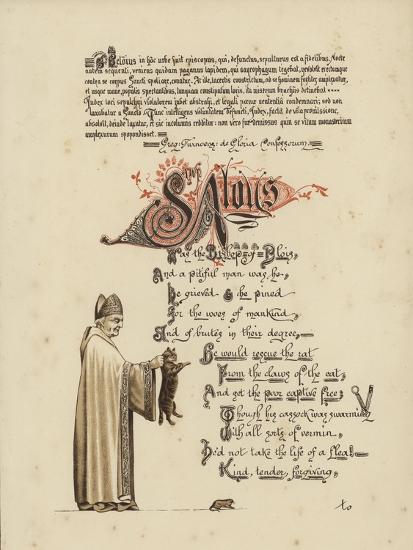 Peloius in hâc urbe fuit episcopus, qui, defunctus, sepulturus est a fidelibus. Nocte
autem sequenti, veniens quidam paganus lapidem, qui sarcophagum tegebat,
contra se corpus Sancti
et usque mane, populis spectantibus, tanquam constipatum loris, ita miserum brachiis detinebat
Judex loci sepulchri violatorem jubet abstrahi, et legali pœnæ sententiâ condemnari; sed non
laxabatur a Sancto. Tunc intelligens voluntatem defuncti, Judex, factâ de vitâ promissione,
absolvit, deinde laxatur, et sic incolumis redditur: non vero fur demissus quin se vitam monasterium
amplexurum spopondisset.
Greg: Turnovers: de Gloria Confessorum
Sanct
Aloys
Was the Bishop of Blois,
And a pitiful man was he,
He grieved & he pined
For the woes of mankind,
And of brutes in their degree,
He would rescue the rat
From the claws of the cat,
And set the poor captive free;
Though his cassock was swarming
With all sorts of vermin,
He'd not take the life of a flea!
Kind, tender, forgiving,
to